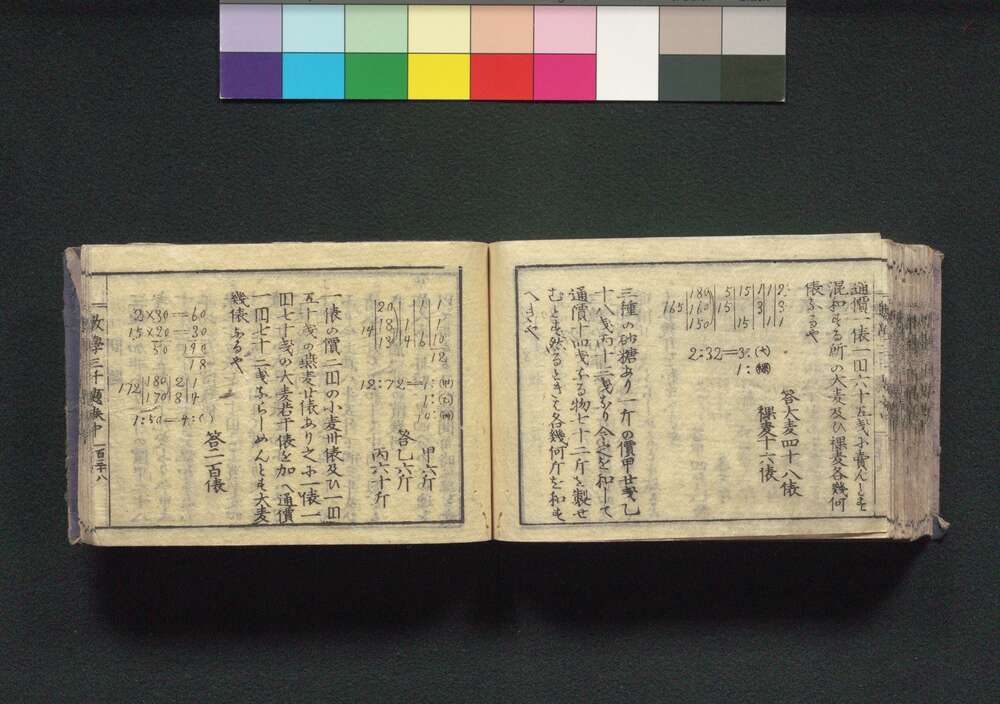 通價一俵一円六十五銭に賣んとす
混和する所の大麦及ひ稞麦各幾何
俵なるや
180 5 15 1 1 2:
165 160 15 3 3:
150 15 1 1:
2:32=3:(大)
1:(稞)
答大麦四十八俵
稞麦十六俵
三種の砂糖あり一斤の價甲廿銭乙
十八銭丙十三銭なり今之を和して
通價十四銭なる物七十二斤を製せ
むとす然るときは各幾何斤を和す
へきや
20 1 1
14 18 1 1
13 4 6 10
12
12:72=1:(甲)
1:(乙)
10:(丙)
甲六斤
答乙六斤
丙六十斤
一俵の價二円の小麦卅俵及ひ一円
五十銭の燕麦廿俵あり之に一俵一
円七十銭の大麦若干俵を加へ通價
一円七十二銭ならしめんとす大麦
幾俵なるや
2×30=60
1.5×20=30
50 90
1.8
172 180 2 1
170 8 4
1:50=4:
答二百俵
数學三千題巻中